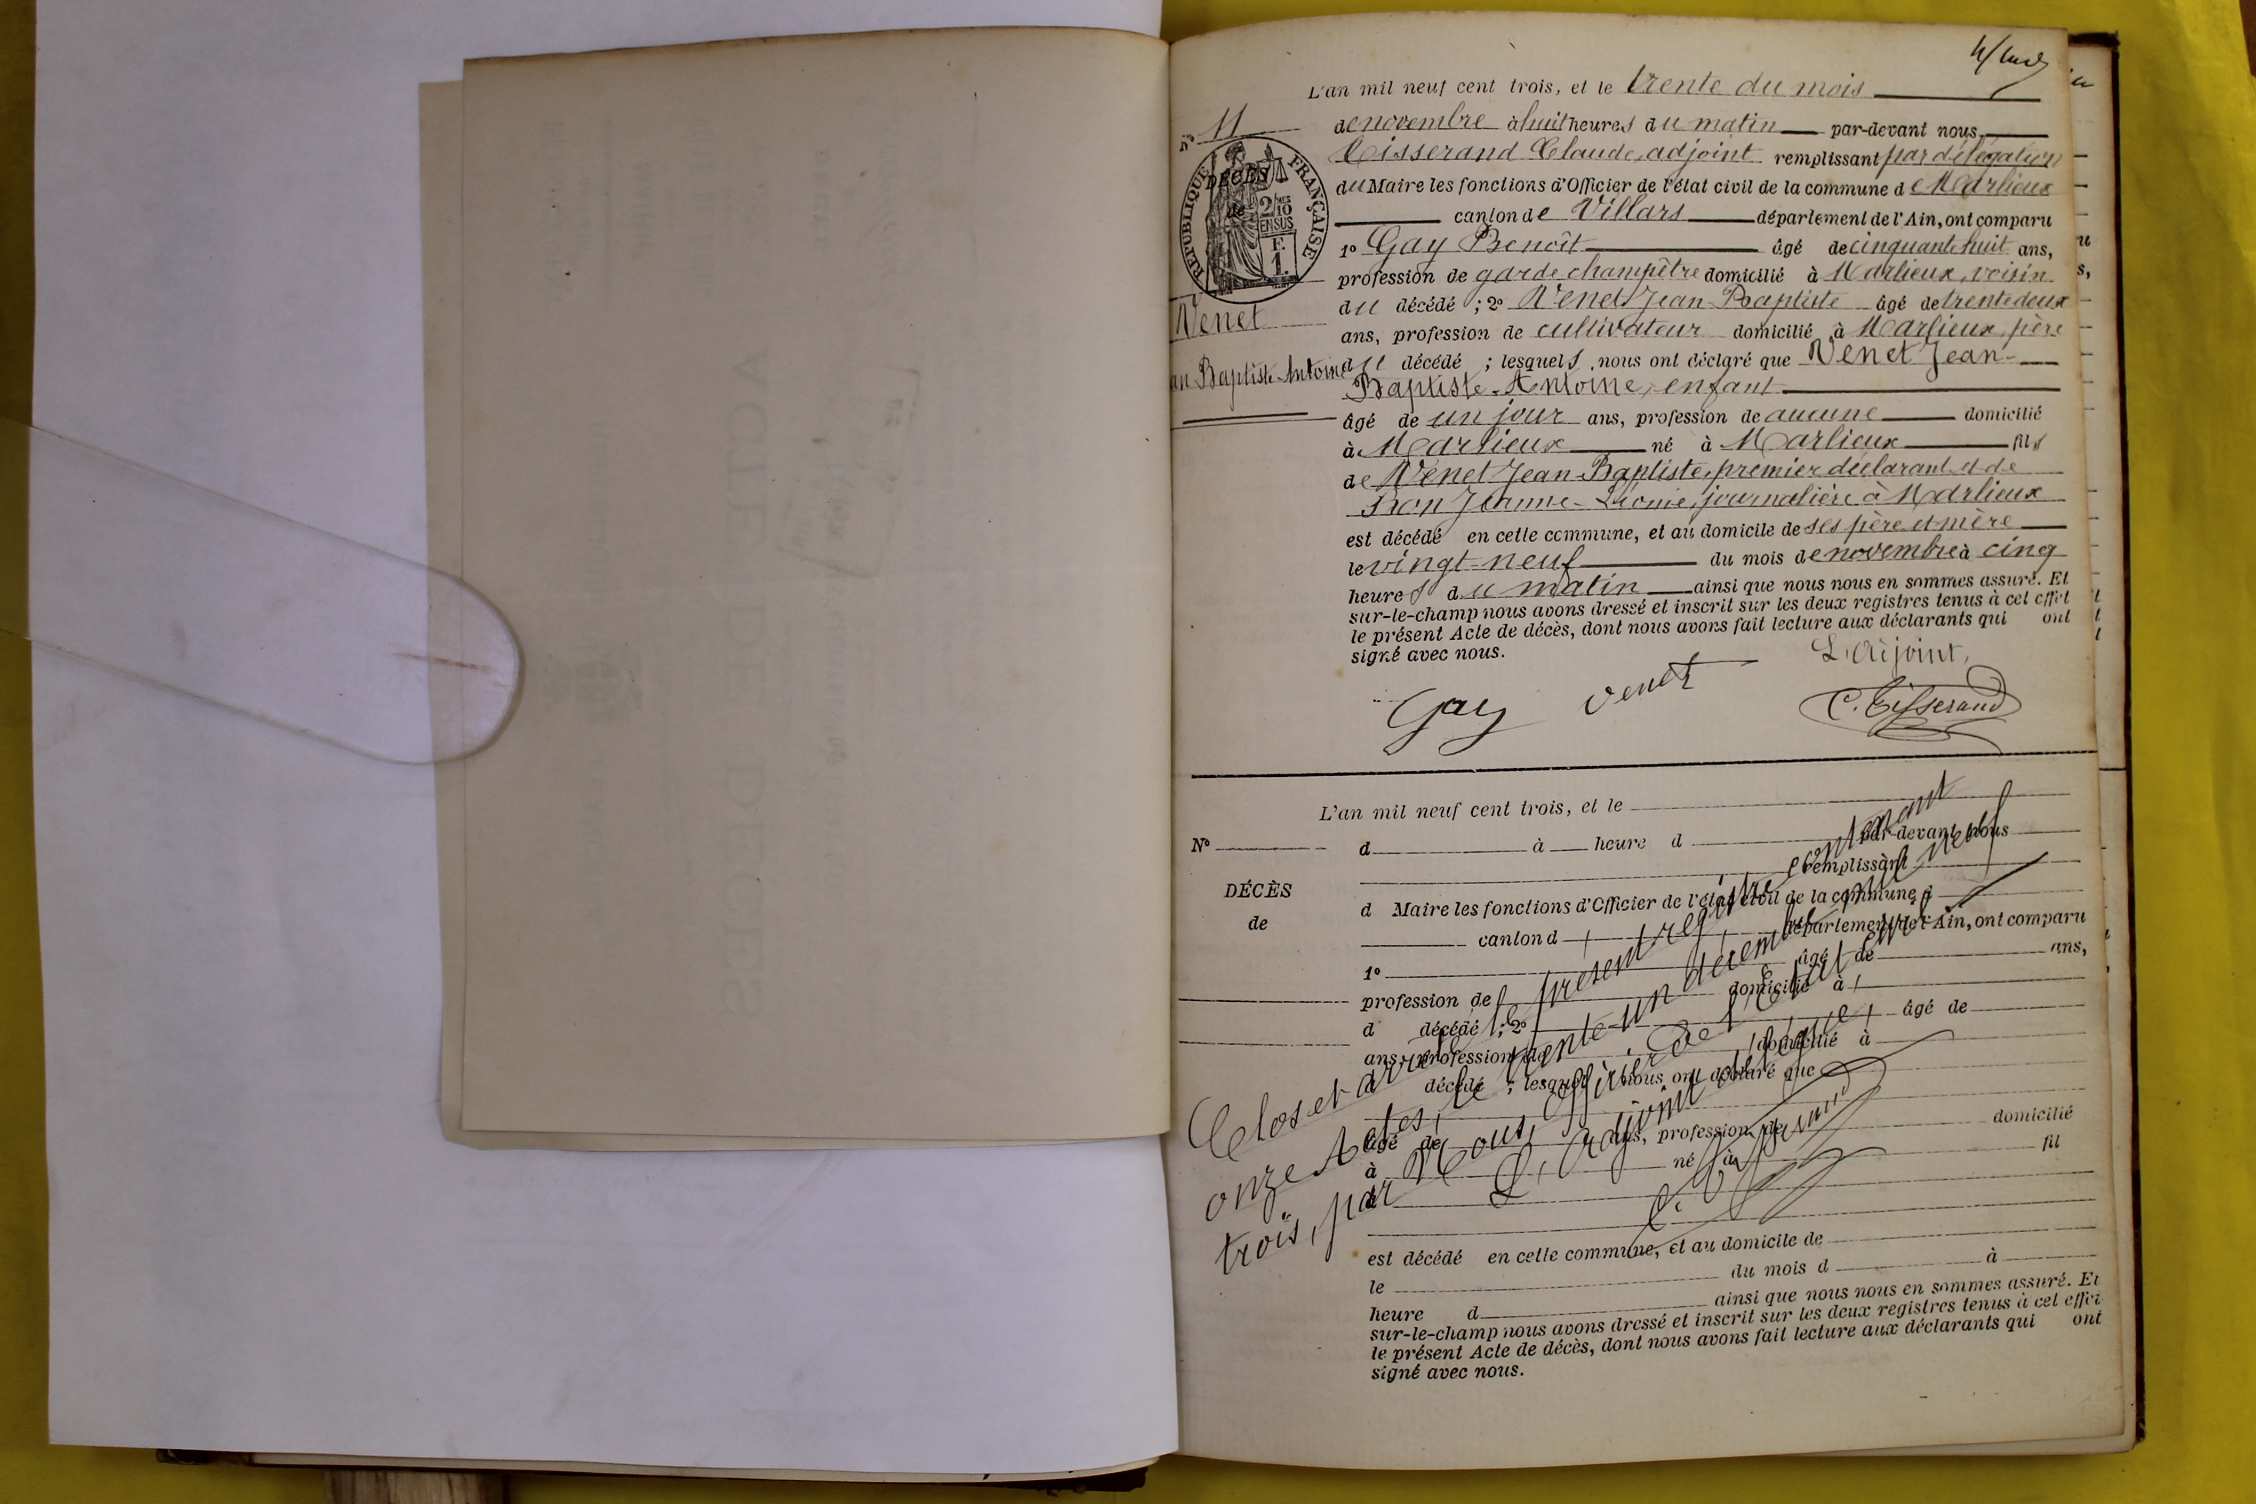 L'an mil neuf cent trois, et le trente du mois
N° 11
de novembre à huit heures du matin par-devant nous,
Tisserand Claude, adjoint remplissant par délégation
du Maire les fonctions d'Officier de l'état civil de la commune de Marlieux
canton de Villars département de l'Ain, ont comparu
RÉPUBLIQUE FRANÇAISE
DÉCÈS
de
2/10
EN SUS
F.
1.
1° Gay Benoît âgé de cinquante huit ans,
profession de garde champêtre domicilié à Marlieux, voisin
du décédé ; 2° Venet Jean-Baptiste âgé de trente deux
Venet
ans, profession de cultivateur domicilié à Marlieux, père
an Baptiste Antoine
du décédé ; lesquels nous ont déclaré que Venet Jean-
Baptiste-Antoine, enfant
âgé de un jour ans, profession de aucune domicilié
à Marlieux né à Marlieux fils
de Venet Jean-Baptiste, premier déclarant et de
Jeanne-Léonie, journalière à Marlieux
est décédé en cette commune, et au domicile de ses père et mère
le vingt-neuf du mois de novembre à cinq
heures du matin ainsi que nous nous en sommes assuré. Et
sur-le-champ nous avons dressé et inscrit sur les deux registres tenus à cet effet
le présent Acte de décès, dont nous avons fait lecture aux déclarants qui ont
signé avec nous.
L'Adjoint,
Gay Venet C. Tisserand
L'an mil neuf cent trois, et le
N° d à heure d par-devant nous
remplissant
DÉCÈS
de
d Maire les fonctions d'Officier de l'état civil de la commune d
canton d département de l'Ain, ont comparu
1° âgé de ans,
profession de domicilié à
d décédé ; 2° âgé de
ans, profession de domicilié à
d décédé ; lesquel nous ont déclaré que
âgé de ans, profession de domicilié
à né à fil
d
est décédé en cette commune, et au domicile de
le du mois d à
heure d ainsi que nous nous en sommes assuré. Et
sur-le-champ nous avons dressé et inscrit sur les deux registres tenus à cet effet
le présent Acte de décès, dont nous avons fait lecture aux déclarants qui ont
signé avec nous.
Clos et arrêté le présent registre contenant
onze Actes, le trente-un décembre mil neuf cent
trois, par Nous, Officier de l'Etat civil
L'Adjoint délégué,
C. Tisserand